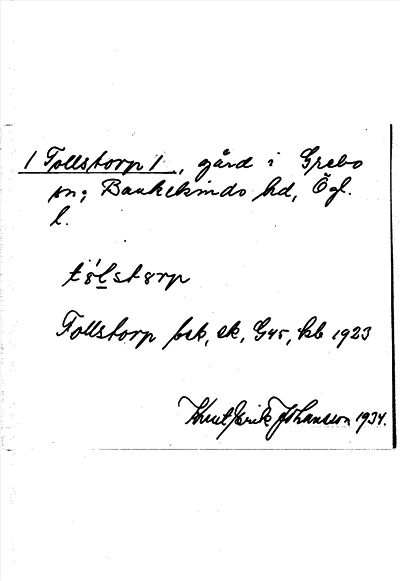 / Tollstorp /, gård i Grebo
sn; Bankekinds hd, Ögl.
l.
t8́lst8rp
Tollstorp bsk, ek, G45, kb 1923
Knut Erik Johansson 1934.